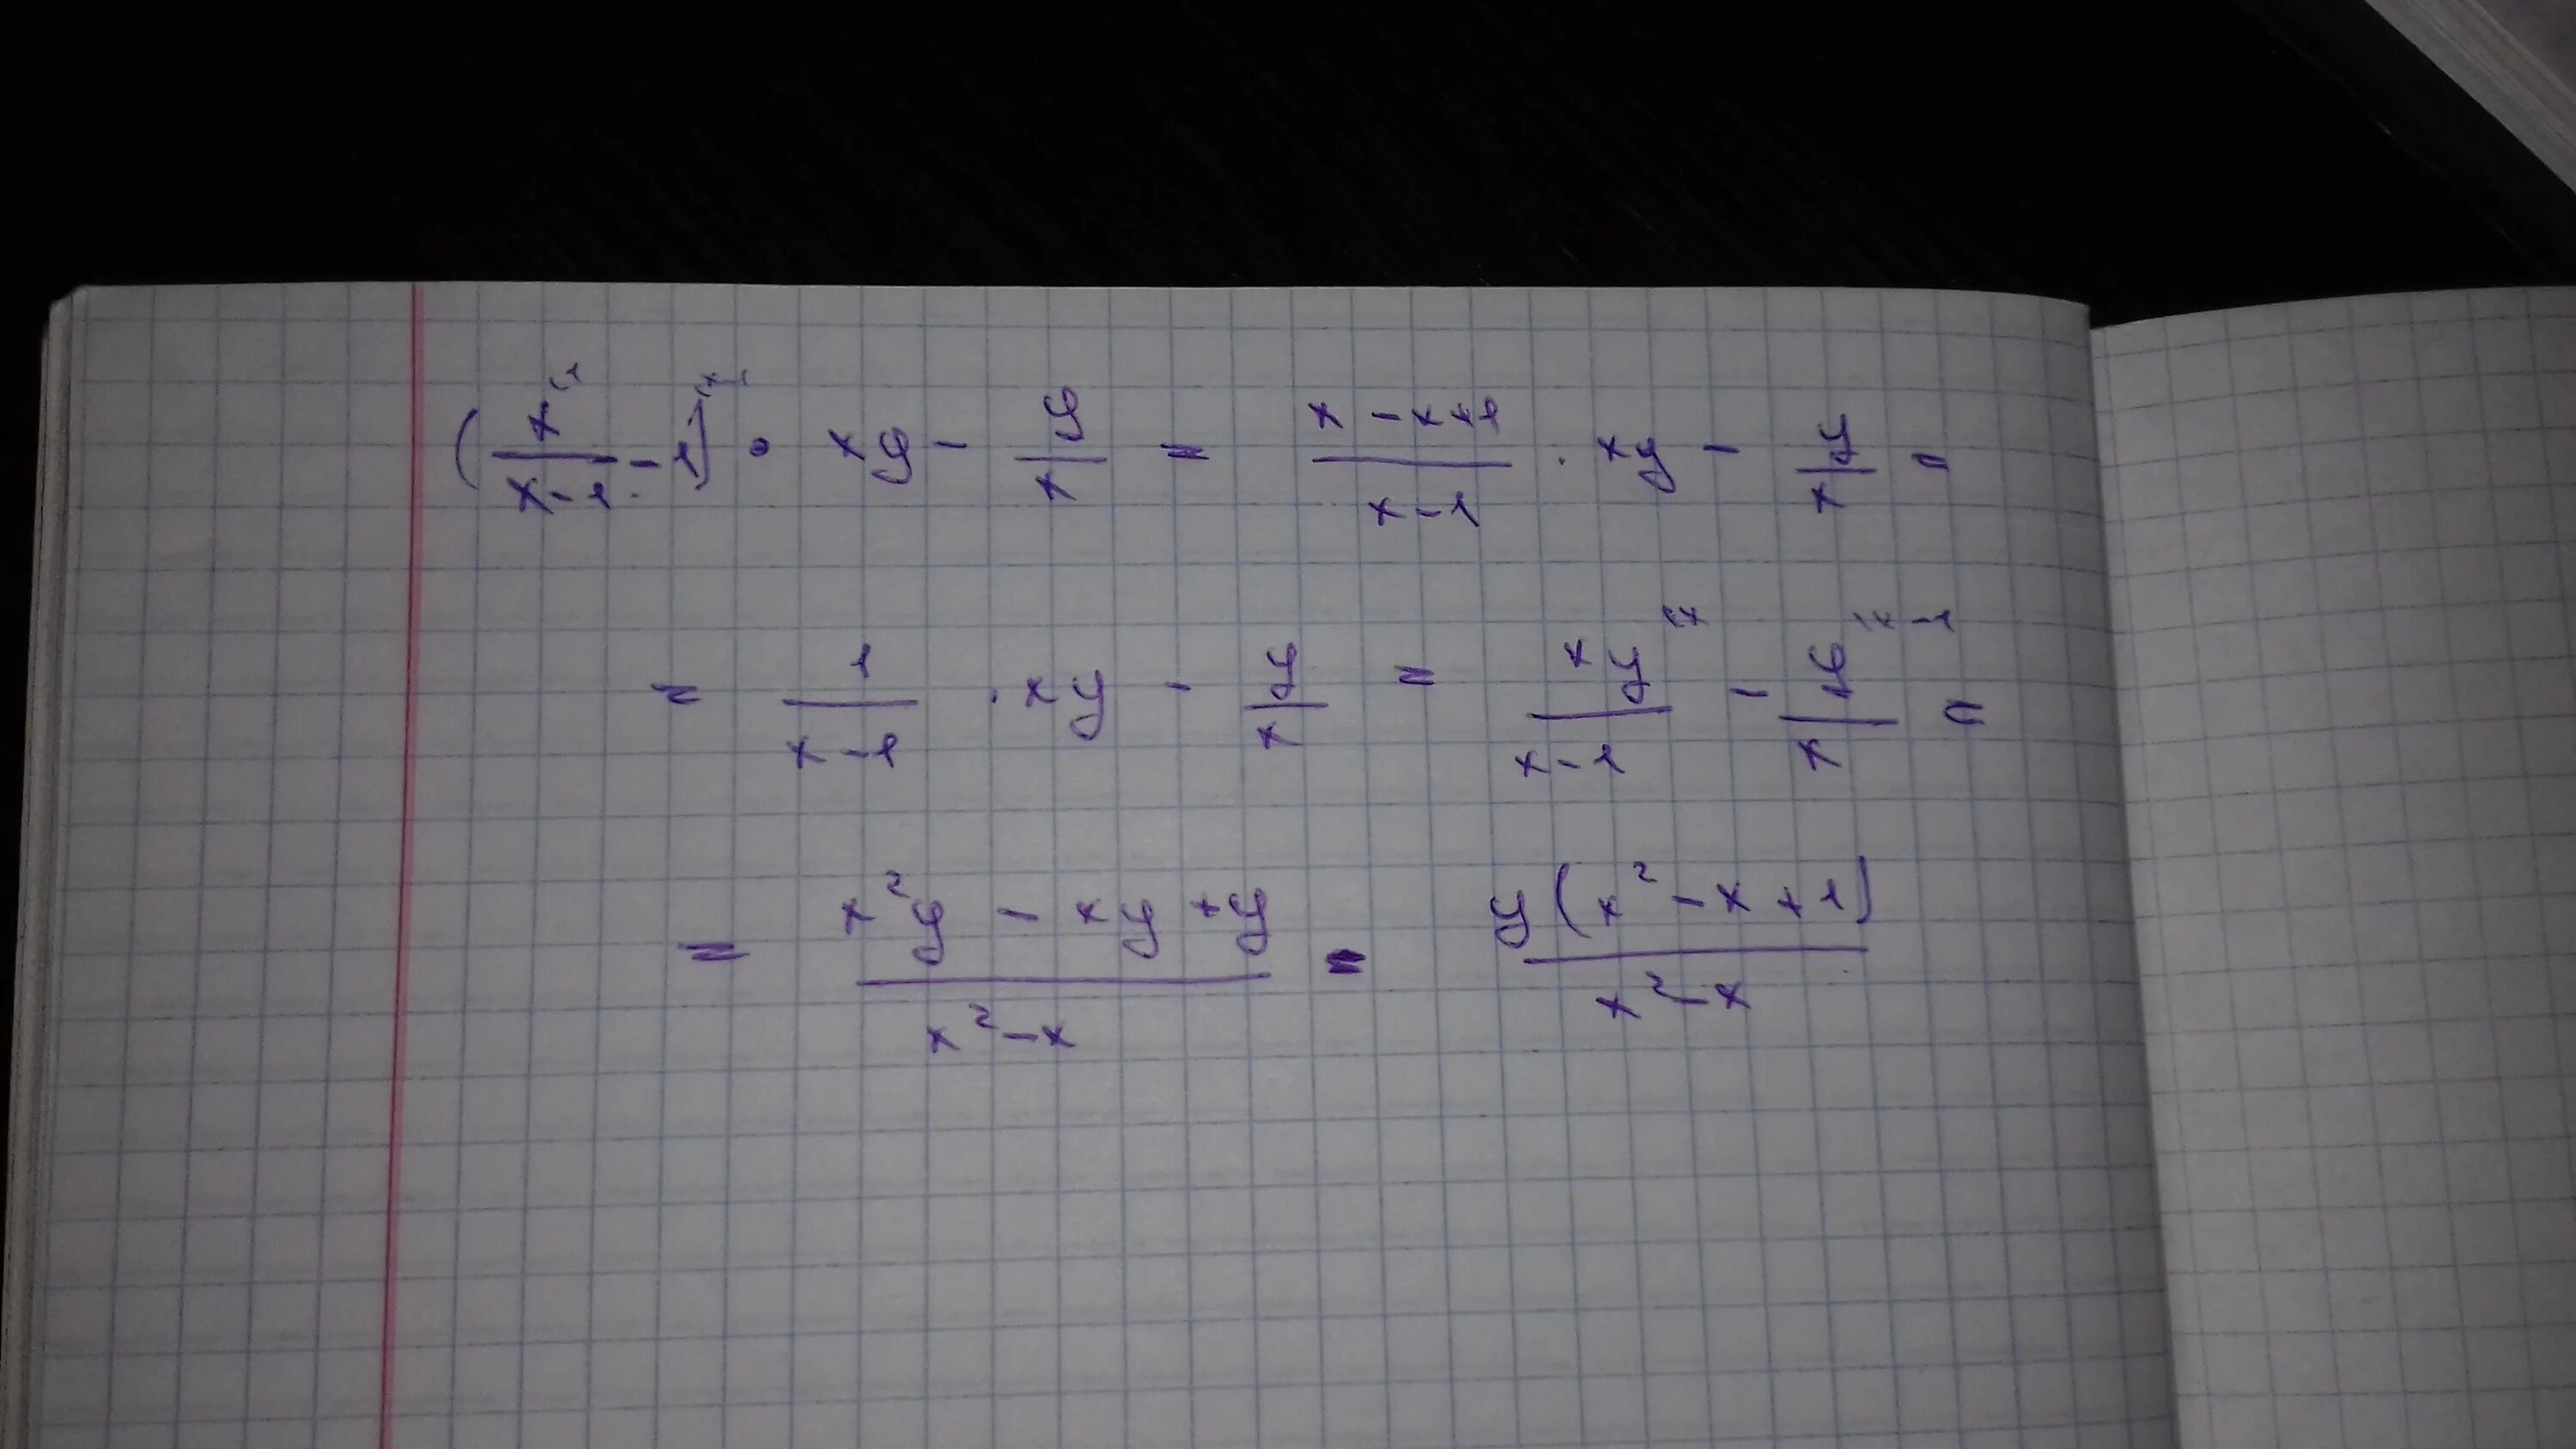 (x/(x-1) - 1) · xy - y/x = (x-x+1)/(x-1) · xy - y/x =
= 1/(x-1) · xy - y/x = xy/(x-1) - y/x =
= (x²y - xy + y)/(x²-x) = y(x²-x+1)/(x²-x)